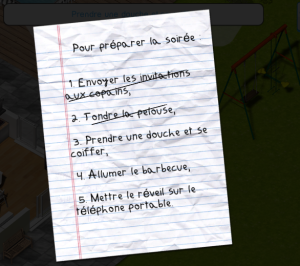 Pour préparer la soirée :
1. Envoyer les invitations
aux copains,
2. Tondre la pelouse,
3. Prendre une douche et se
coiffer,
4. Allumer le barbecue,
5. Mettre le réveil sur le
téléphone portable.